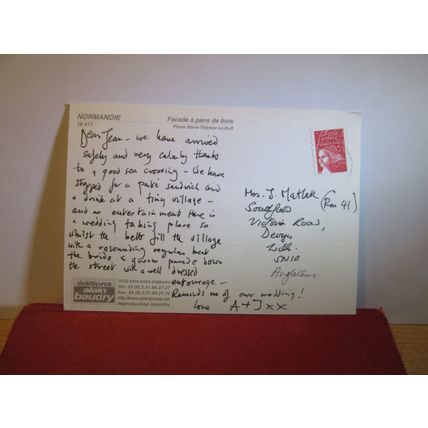 NORMANDIE
Façade à pans de bois
Photo Marie-Thérèse Le Duff
Dear Jean - we have arrived
safely and very calmly thanks
to a good sea crossing - We have
stopped for a pate sandwich and
a drink at a tiny village -
and as entertainment there is
a wedding taking place so
whilst the bells fill the village
with a resounding regular beat
the bride & groom parade down
the street with a well dressed
entourage -
Reminds me of our wedding!
love A + J xx
Mrs. J. Matlak (Rm 41)
Southfield
Victoria Road,
Devizes
Wilts.
SN10
Angleterre
éditions
alain
baudry
Reproduction interdite